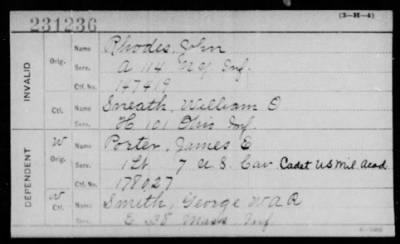 231236
(3-H-4)
INVALID
Orig.
Name Rhodes, John
Serv. A 114 N Y Inf.
Ctf. No. 147419
Ctf.
Name Sneath, William O
Serv. H 101 Ohio Inf.
DEPENDENT
W
Orig.
Name Porter, James E
Serv. 1 Lt. 7 U.S. Cav Cadet US Mil Acad.
Ctf. No. 178027
W
Ctf.
Name Smith, George W A R
Serv. E 38 Mass Inf